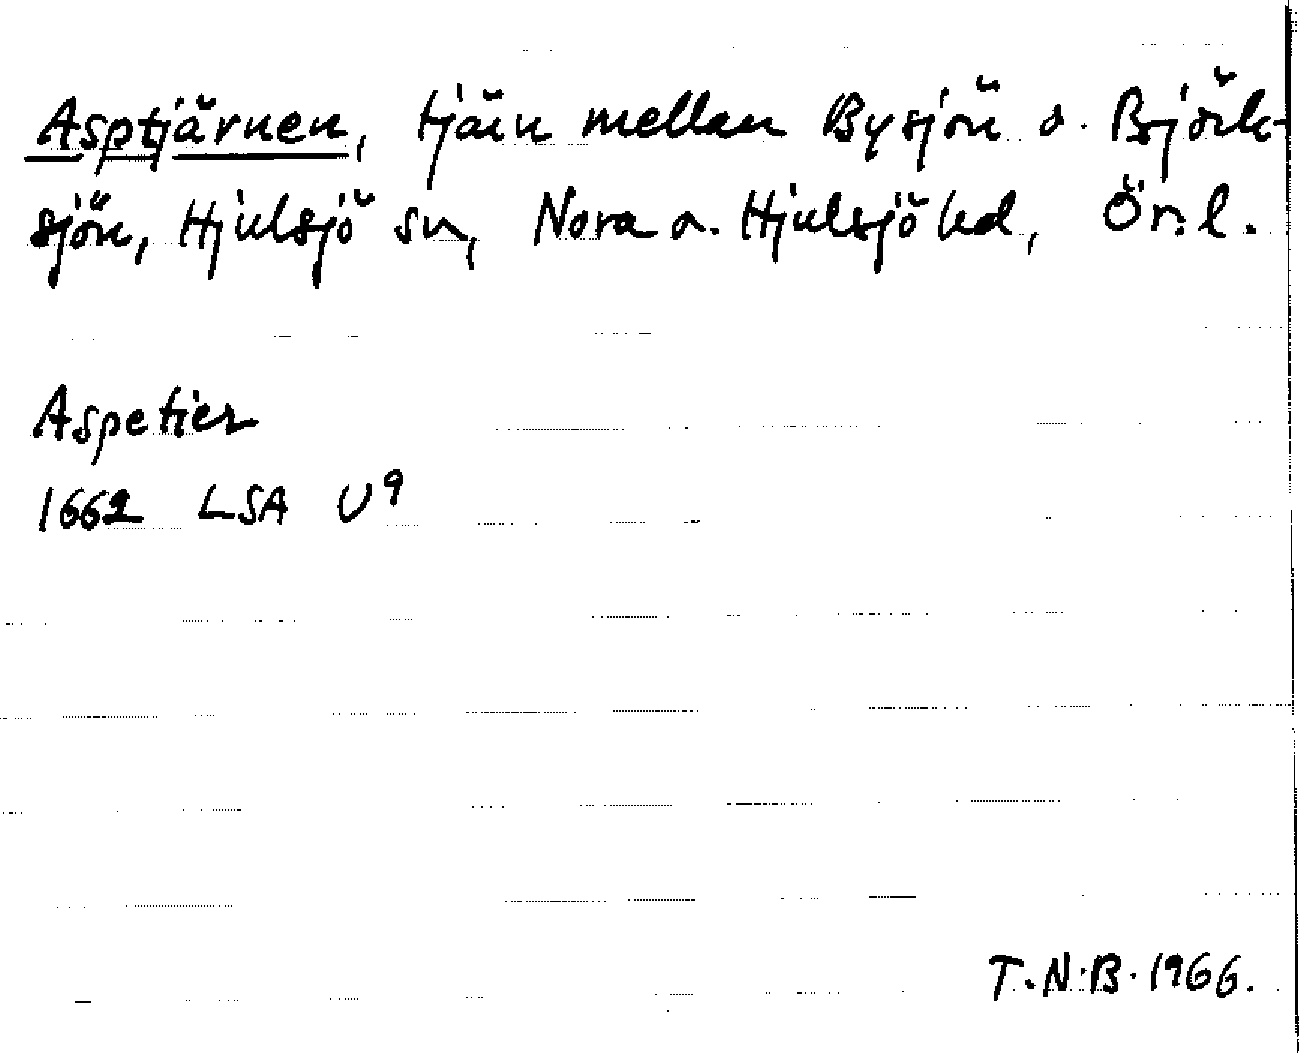 Asptjärnen, tjärn mellan Bysjön o. Björk-
sjön, Hjulsjö sn, Nora o. Hjulsjö hd, Ör. l.
Aspetier
1662 LSA U9
T.N.B. 1966.